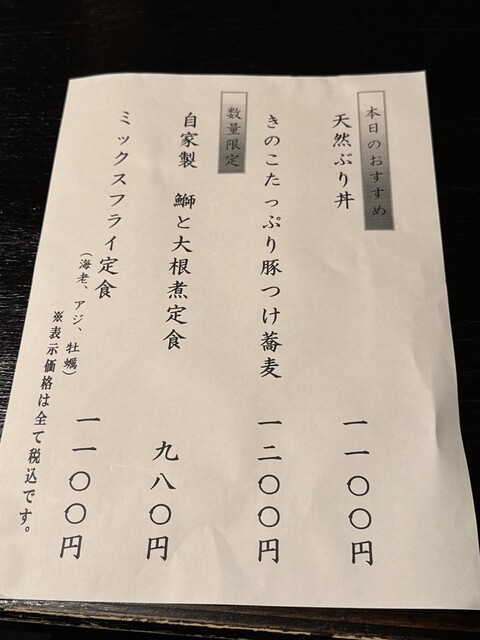 本日のおすすめ
天然ぶり丼 一一〇〇円
きのこたっぷり豚つけ蕎麦 一二〇〇円
数量限定
自家製 鰤と大根煮定食 九八〇円
ミックスフライ定食 一一〇〇円
(海老、アジ、牡蠣)
※表示価格は全て税込です。